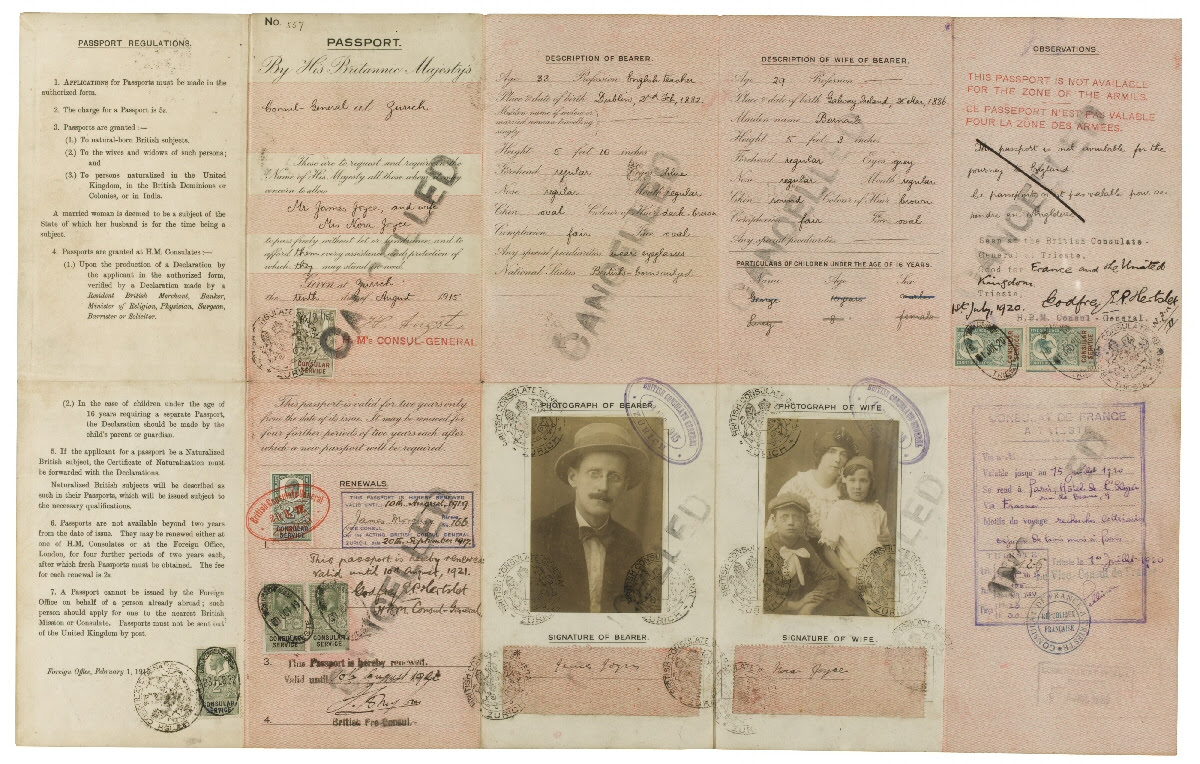 PASSPORT REGULATIONS.
1. APPLICATIONS for Passports must be made in the
authorized form.
2. The charge for a Passport is 5s.
3. Passports are granted :—
(1.) To natural-born British subjects.
(2.) To the wives and widows of such persons;
and
(3.) To persons naturalized in the United
Kingdom, in the British Dominions or
Colonies, or in India.
A married woman is deemed to be a subject of the
State of which her husband is for the time being a
subject.
4. Passports are granted at H.M. Consulates :—
(1.) Upon the production of a Declaration by
the applicant in the authorized form,
verified by a Declaration made by a
Resident British Merchant, Banker,
Minister of Religion, Physician, Surgeon,
Barrister or Solicitor.
(2.) In the case of children under the age of
16 years requiring a separate Passport,
the Declaration should be made by the
child's parent or guardian.
5. If the applicant for a passport be a Naturalized
British subject, the Certificate of Naturalization must
be forwarded with the Declarations.
Naturalized British subjects will be described as
such in their Passports, which will be issued subject to
the necessary qualifications.
6. Passports are not available beyond two years
from the date of issue. They may be renewed either at
one of H.M. Consulates or at the Foreign Office,
London, for four further periods of two years each,
after which fresh Passports must be obtained. The fee
for each renewal is 2s.
7. A Passport cannot be issued by the Foreign
Office on behalf of a person already abroad; such
person should apply for one to the nearest British
Mission or Consulate. Passports must not be sent out
of the United Kingdom by post.
Foreign Office, February 1, 1915.
CONSULAR
SERVICE
No. 557
PASSPORT.
By His Britannic Majesty's
Consul-General at Zurich.
These are to request and require in the
Name of His Majesty all those whom it may
concern to allow
Mr James Joyce, and wife
Mrs Nora Joyce
to pass freely without let or hindrance, and to
afford them every assistance and protection of
which they may stand in need.
Given at Zurich
the tenth day of August 1915
H.M's CONSUL-GENERAL
CONSULAR
SERVICE
CANCELLED
This passport is valid for two years only
from the date of issue. It may be renewed for
four further periods of two years each after
which a new passport will be required.
RENEWALS.
THIS PASSPORT IS HEREBY RENEWED
VALID UNTIL 10th August, 1919
VICE CONSUL
ACTING BRITISH CONSUL GENERAL
ZURICH 20th September 1917
CONSULAR
SERVICE
This passport is hereby renewed
Valid until 10th August, 1921.
H.B.M. Consul-General
CONSULAR
SERVICE
CONSULAR
SERVICE
3. This Passport is hereby renewed.
Valid until 10th August 1923
British Pro-Consul.
4.
CANCELLED
DESCRIPTION OF BEARER.
Age 33 Profession English teacher
Place & date of birth Dublin, 2nd Feb, 1882.
Maiden name if widow or
married woman travelling
singly
Height 5 feet 10 inches
Forehead regular Eyes blue
Nose regular Mouth regular
Chin oval Colour of Hair dark brown
Complexion fair Face oval
Any special peculiarities wears eyeglasses
National Status British-born subject
CANCELLED
PHOTOGRAPH OF BEARER.
BRITISH CONSULATE GENERAL
ZURICH
SIGNATURE OF BEARER.
James Joyce
DESCRIPTION OF WIFE OF BEARER.
Age 29 Profession
Place & date of birth Galway, Ireland, 1886
Maiden name Barnacle
Height 5 feet 3 inches
Forehead regular Eyes grey
Nose regular Mouth regular
Chin round Colour of Hair brown
Complexion fair Face oval
Any special peculiarities
PARTICULARS OF CHILDREN UNDER THE AGE OF 16 YEARS.
Name Age Sex
George
Lucy 8 female
CANCELLED
PHOTOGRAPH OF WIFE.
BRITISH CONSULATE GENERAL
ZURICH
CANCELLED
SIGNATURE OF WIFE.
Nora Joyce
OBSERVATIONS
THIS PASSPORT IS NOT AVAILABLE
FOR THE ZONE OF THE ARMIES.
CE PASSEPORT N'EST PAS VALABLE
POUR LA ZÔNE DES ARMÉES.
This passport is not available for the
journey to England
Seen at the British Consulate-
General at Trieste.
Good for France and the United
Kingdom.
Trieste,
1st July, 1920.
H.B.M. Consul-General.
CONSULAR
SERVICE
CONSULAR
SERVICE
CANCELLED
CONSULAT DE FRANCE
A TRIESTE
Valable jusqu'au 15 juillet 1920
Se rend à Paris
Motifs du voyage
Trieste
RÉPUBLIQUE
FRANÇAISE
CANCELLED